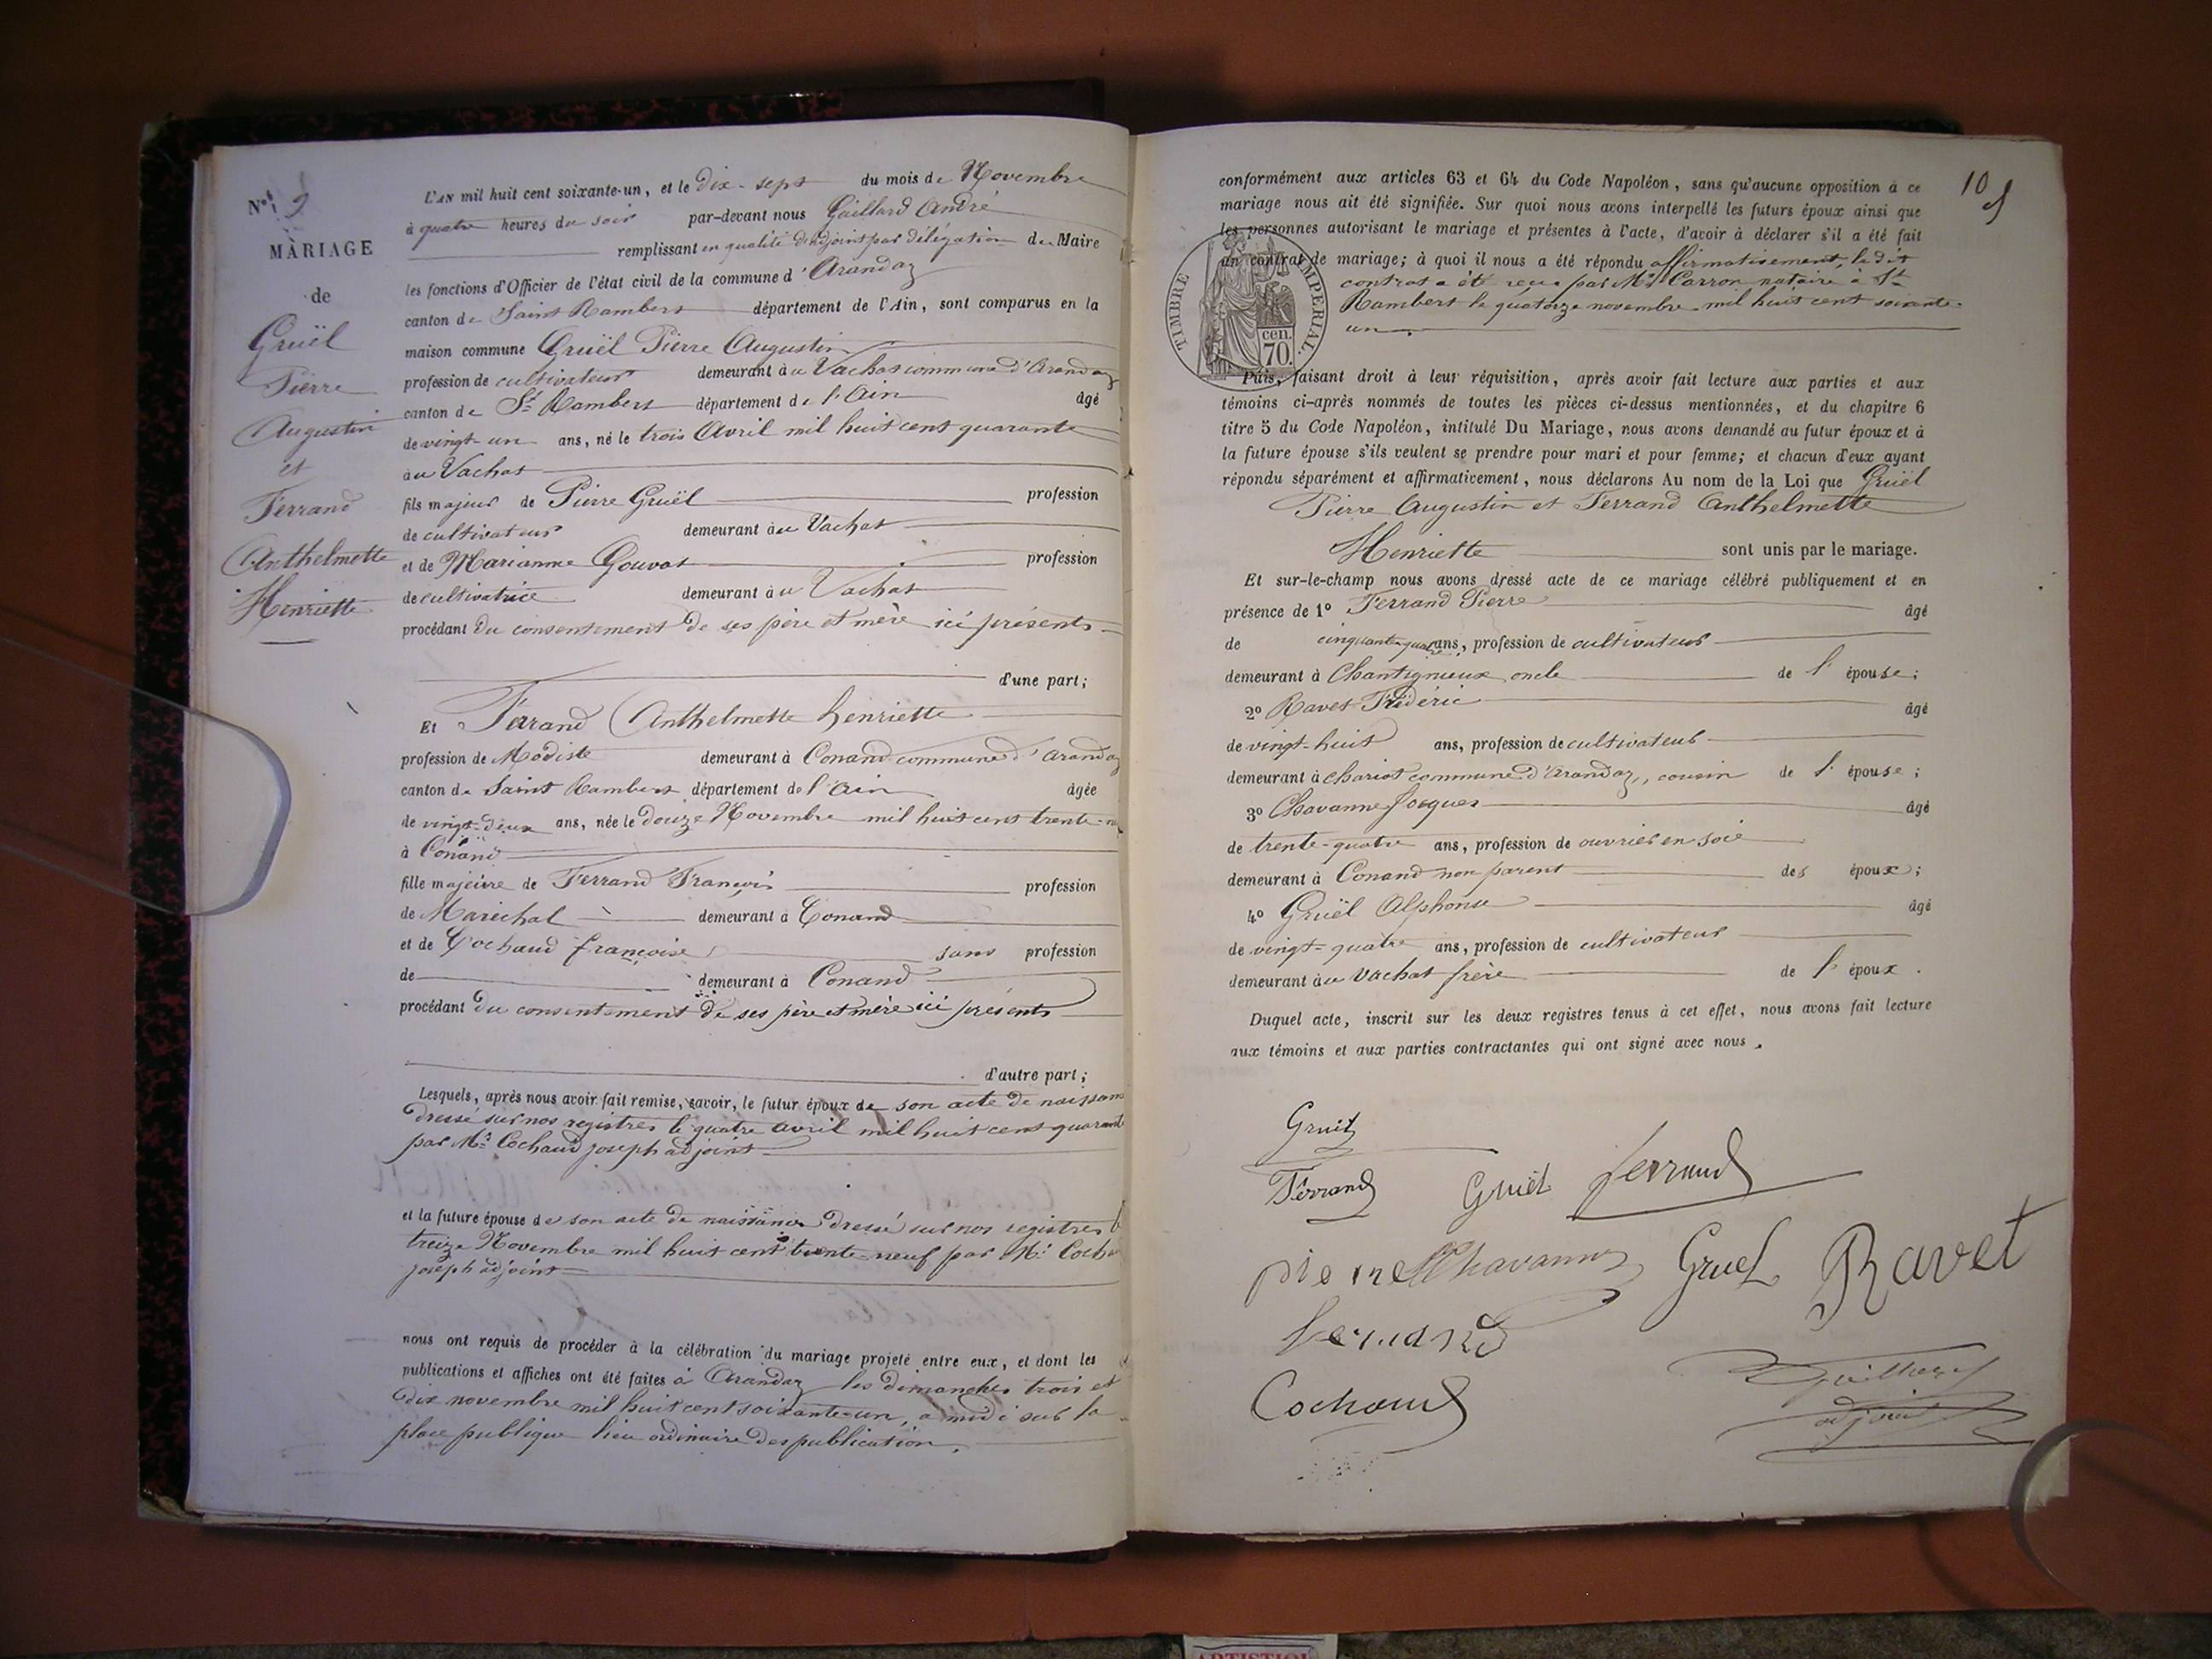 No. 9
MARIAGE
de
Gruël
Pierre
Augustin
et
Ferrand
Anthelmette
Henriette
L'AN mil huit cent soixante-un, et le dix-sept du mois de Novembre
à quatre heures du soir par-devant nous Gaillard André
remplissant en qualité d'adjoint par délégation de Maire
les fonctions d'Officier de l'état civil de la commune d'Arandaz
canton de Saint Rambert département de l'Ain, sont comparus en la
maison commune Gruël Pierre Augustin
profession de cultivateur demeurant à u Vachat commune d'Arandaz
canton de St Rambert département de l'Ain âgé
de vingt-un ans, né le trois Avril mil huit cent quarante
àu Vachat
fils majeur de Pierre Gruël profession
de cultivateur demeurant àu Vachat
et de Marianne Gouvat profession
de cultivatrice demeurant àu Vachat
procédant du consentement de ses père et mère ici présents
d'une part;
Et Ferrand Anthelmette henriette
profession de Modiste demeurant à Conand commune d'Arandaz
canton de Saint Rambert département de l'Ain âgée
de vingt-deux ans, née le douze Novembre mil huit cent trente-n
à Conand
fille majeure de Ferrand François profession
de Maréchal demeurant à Conand
et de Cochaud françoise sans profession
de demeurant à Conand
procédant du consentement de ses père et mère ici présents
d'autre part;
Lesquels, après nous avoir fait remise, savoir, le futur époux de son acte de naissan
dressé sur nos registres le quatre avril mil huit cent quarante
par Mr Cochaud joseph adjoint
et la future épouse de son acte de naissance dressé sur nos registres l
treize Novembre mil huit cent trente-neuf par Mr Cocha
joseph adjoint
nous ont requis de procéder à la célébration du mariage projeté entre eux, et dont les
publications et affiches ont été faites à Arandaz les dimanches trois et
dix novembre mil huit cent soixante-un, a midi sur la
place publique lieu ordinaire des publication.
10
conformément aux articles 63 et 64 du Code Napoléon, sans qu'aucune opposition à ce
mariage nous ait été signifiée. Sur quoi nous avons interpellé les futurs époux ainsi que
les personnes autorisant le mariage et présentes à l'acte, d'avoir à déclarer s'il a été fait
un contrat de mariage; à quoi il nous a été répondu affirmativement, le dit
contrat a été reçu par Mr Carron notaire à St
Rambert le quatorze novembre mil huit cent soixante-
un
TIMBRE IMPERIAL.
cen.
70.
Puis, faisant droit à leur réquisition, après avoir fait lecture aux parties et aux
témoins ci-après nommés de toutes les pièces ci-dessus mentionnées, et du chapitre 6
titre 5 du Code Napoléon, intitulé Du Mariage, nous avons demandé au futur époux et à
la future épouse s'ils veulent se prendre pour mari et pour femme; et chacun d'eux ayant
répondu séparément et affirmativement, nous déclarons Au nom de la Loi que Gruël
Pierre Augustin et Ferrand Anthelmette
Henriette sont unis par le mariage.
Et sur-le-champ nous avons dressé acte de ce mariage célébré publiquement et en
présence de 1o Ferrand Pierre âgé
de cinquante-quatre ans, profession de cultivateur
demeurant à Chantignieux oncle de l'épouse;
2o Ravet Frédéric âgé
de vingt-huit ans, profession de cultivateur
demeurant à chariot commune d'Arandaz, cousin de l'épouse;
3o Chavanne Jacques âgé
de trente-quatre ans, profession de ouvrier en soie
demeurant à Conand non parent des époux;
4o Gruël Alphonse âgé
de vingt-quatre ans, profession de cultivateur
demeurant àu Vachat frère de l'époux.
Duquel acte, inscrit sur les deux registres tenus à cet effet, nous avons fait lecture
aux témoins et aux parties contractantes qui ont signé avec nous.
Gruël
Ferrand Gruël ferrand
pierre Chavanne Gruel Ravet
ferrand
Cochaud
adjoint